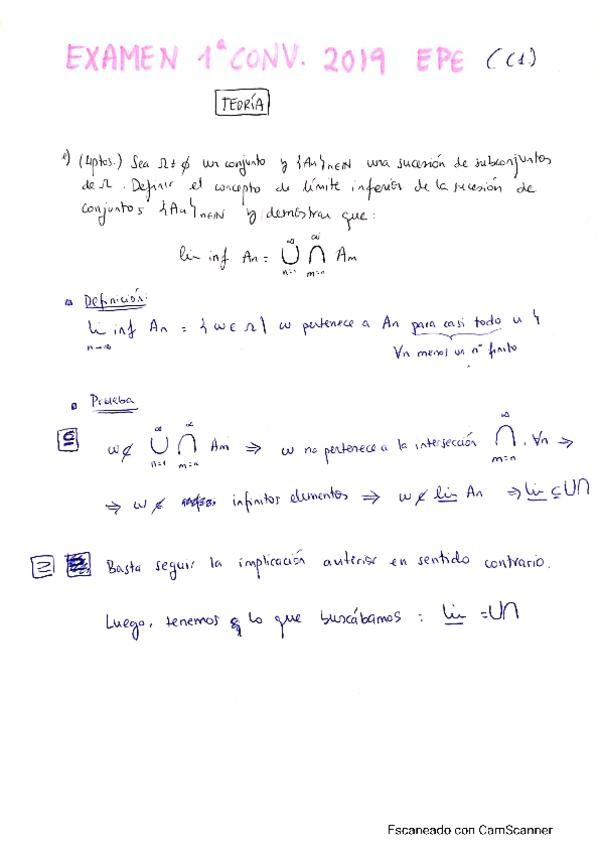 EXAMEN 1ª CONV. 2019 EPE (C1)
TEORÍA
(4ptos.) Sea Ω ≠ ∅ un conjunto y {An}n∈ℕ una sucesión de subconjuntos
de Ω. Definir el concepto de límite inferior de la sucesión de
conjuntos {An}n∈ℕ y demostrar que:
lim inf An = ⋃ n=1 ∞ ⋂ m=n ∞ Am
Definición:
lim inf An = {ω ∈ Ω | ω pertenece a An para casi todo n}
n→∞
∀n menos un nº finito
Prueba
⊆ ω ∉ ⋃ n=1 ∞ ⋂ m=n ∞ Am ⇒ ω no pertenece a la intersección ⋂ m=n ∞, ∀n ⇒
⇒ ω ∉ infinitos elementos ⇒ ω ∉ lim An ⇒ lim ⊆ ∪∩
⊇ Basta seguir la implicación anterior en sentido contrario.
Luego, tenemos lo que buscábamos: lim = ∪∩
Escaneado con CamScanner